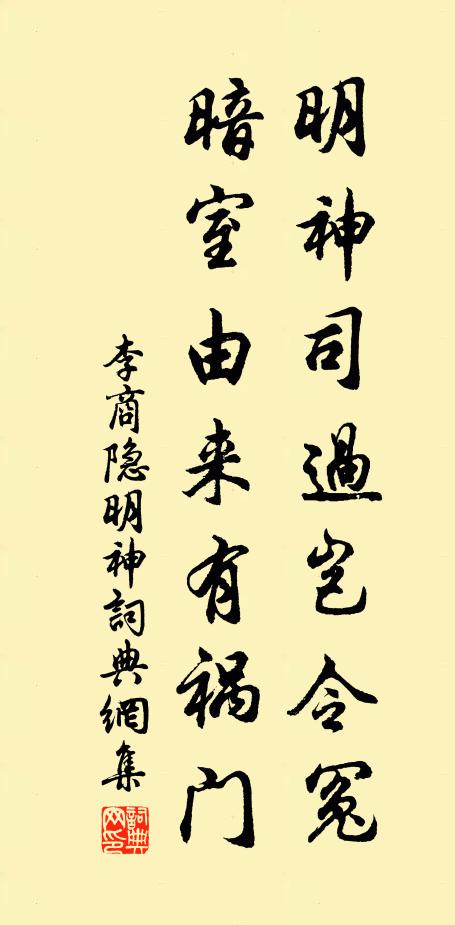 明神司過岂令冤
暗室由来有祸门
李商隐明神詞典網集
詞典网印